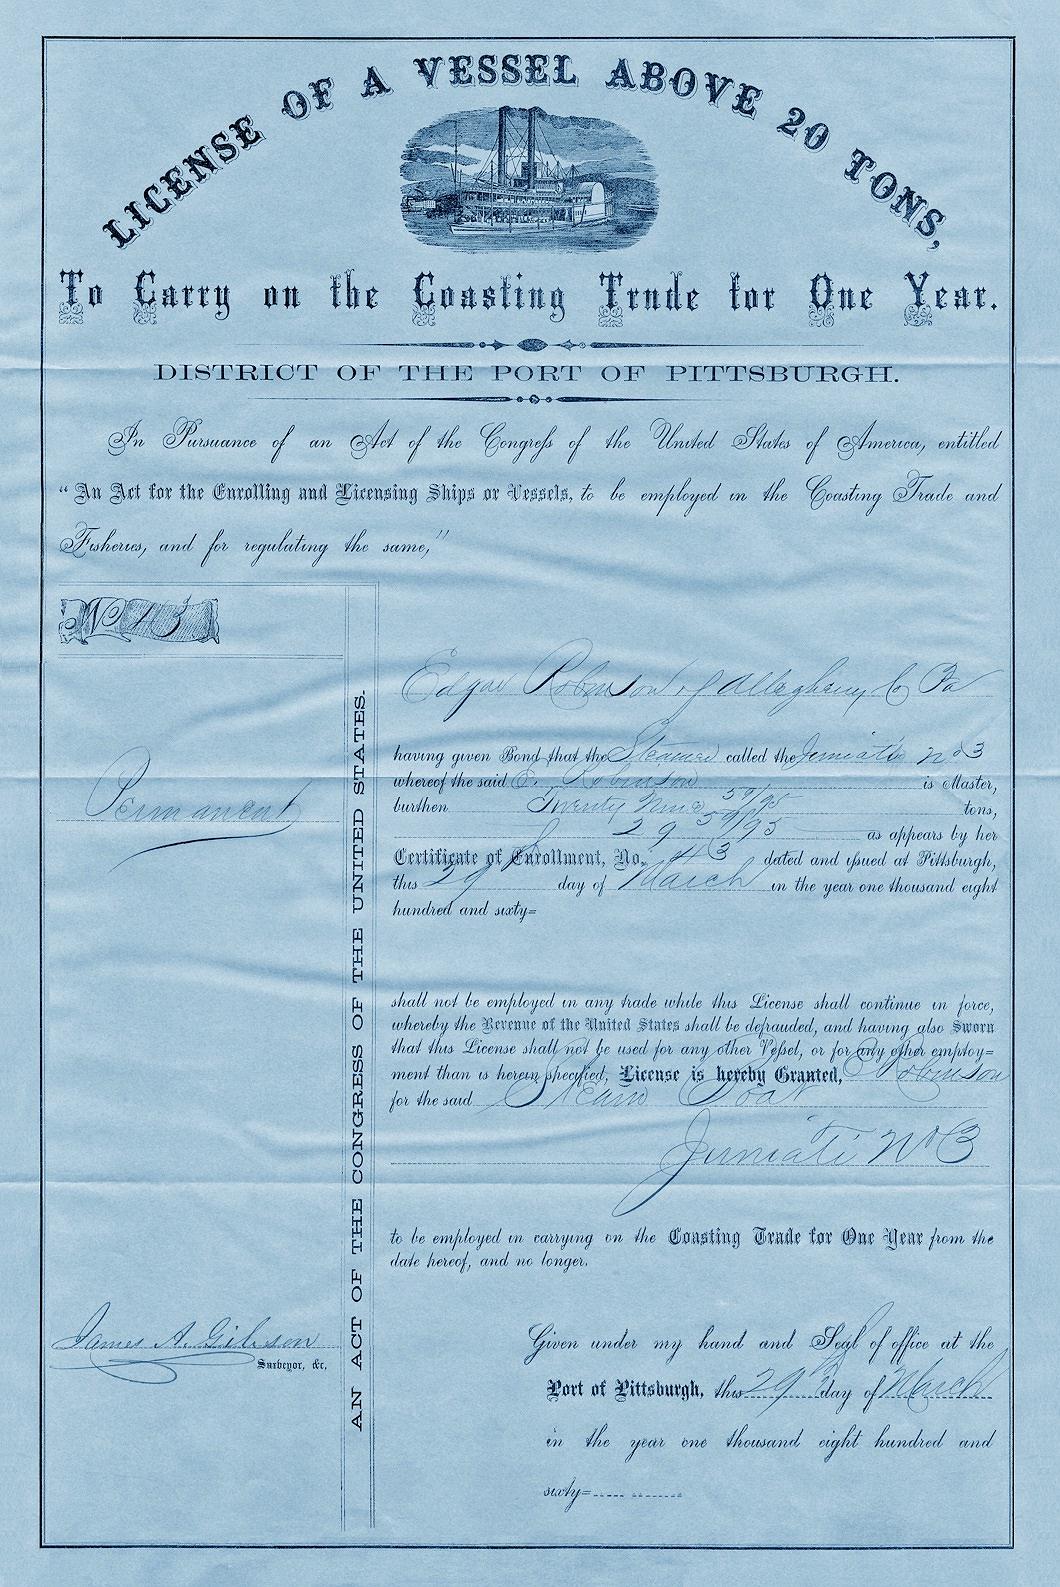 LICENSE OF A VESSEL ABOVE 20 TONS,
To Carry on the Coasting Trade for One Year.
DISTRICT OF THE PORT OF PITTSBURGH.
In Pursuance of an Act of the Congress of the United States of America, entitled
"An Act for the Enrolling and Licensing Ships or Vessels, to be employed in the Coasting Trade and
Fisheries, and for regulating the same,"
No 43
Permanent
James A. Gibson
Surveyor, &c,
AN ACT OF THE CONGRESS OF THE UNITED STATES.
Edgar Robinson of Allegheny Co Pa
having given Bond that the Steamer called the Juniata No 3
whereof the said E. Robinson is Master,
burthen Twenty Nine 59/95 tons,
29 59/95 as appears by her
Certificate of Enrollment, No. 43 dated and issued at Pittsburgh,
this 29 day of March in the year one thousand eight
hundred and sixty=
shall not be employed in any trade while this License shall continue in force,
whereby the Revenue of the United States shall be defrauded, and having also Sworn
that this License shall not be used for any other Vessel, or for any other employ=
ment than is herein specified, License is hereby Granted, E Robinson
for the said Steam Boat
Juniata No 3
to be employed in carrying on the Coasting Trade for One Year from the
date hereof, and no longer.
Given under my hand and Seal of office at the
Port of Pittsburgh, this 29th day of March
in the year one thousand eight hundred and
sixty=